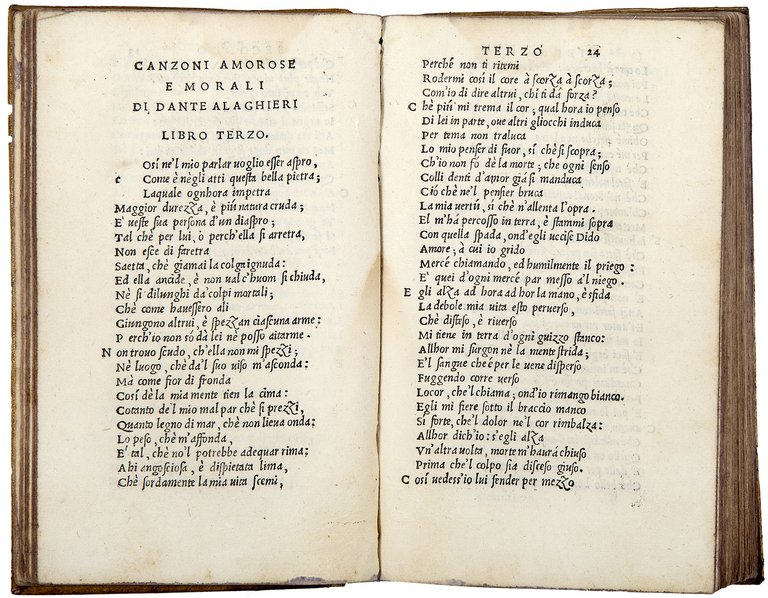 CANZONI AMOROSE
E MORALI
DI DANTE ALAGHIERI
LIBRO TERZO.
Osí ne'l mio parlar uoglio esser aspro,
c Come è nègli atti questa bella pietra;
Laquale ognhora impetra
Maggior durezza, è piú natura cruda;
E' ueste sua persona d'un diaspro;
Tal chè per lui, ò perch'ella si arretra,
Non esce di faretra
Saetta, chè giamai la colga ignuda:
Ed ella ancide, è non ual c'huom si chiuda,
Nè si dilunghi da colpi mortali;
Chè come hauessero ali
Giungono altrui, è spezzan ciascuna arme:
Perch'io non só dá lei nè posso aitarme.
Non trouo scudo, ch'ella non mi spezzi;
Nè luogo, chè dá'l suo uiso m'asconda:
Má come fior di fronda
Cosí dè la mia mente tien la cima:
Cotanto de'l mio mal par chè si prezzi,
Quanto legno di mar, chè non lieua onda:
Lo peso, chè m'affonda,
E' tal, chè no'l potrebbe adequar rima:
Ahi angosciosa, è dispietata lima,
Chè sordamente la mia uita scemi,
TERZO 24
Perché non ti ritemi
Rodermi cosí il core à scorza à scorza;
Com'io di dire altrui, chi ti dá forza?
Chè piú mi trema il cor; qual hora io penso
Di lei in parte, oue altri gliocchi induca
Per tema non traluca
Lo mio penser di fuor, sí chè si scopra;
Ch'io non fó dè la morte; che ogni senso
Colli denti d'amor giá si manduca
Ció chè ne'l pensier bruca
La mia uertú, si chè n'allenta l'opra.
El m'há percosso in terra, è stammi sopra
Con quella spada, ond'egli uccise Dido
Amore; à cui io grido
Mercé chiamando, ed humilmente il priego:
E' quei d'ogni mercé par messo a'l niego.
Egli alza ad hora ad hor la mano, è sfida
La debole mia uita esto peruerso,
Chè disteso, è riuerso
Mi tiene in terra d'ogni guizzo stanco:
Allhor mi surgon nè la mente strida;
E'l sangue che é per le uene disperso
Fuggendo corre uerso
Lo cor, che'l chiama; ond'io rimango bianco.
Egli mi fiere sotto il braccio manco
Si forte, che'l dolor ne'l cor rimbalza:
Allhor dich'io: s'egli alza
Vn'altra uolta, morte m'haurá chiuso
Prima che'l colpo sia disceso giuso.
Cosí uedess'io lui fender per mezzo